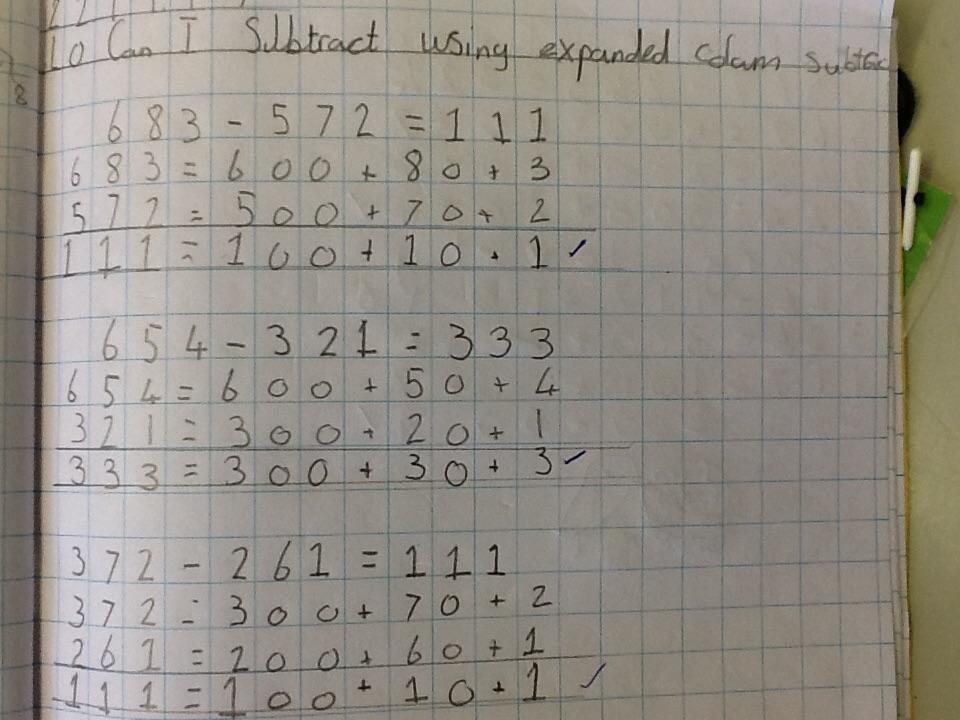 LO Can I Subtract using expanded colum subtrac
8
683 - 572 = 111
683 = 600 + 80 + 3
572 = 500 + 70 + 2
111 = 100 + 10 + 1 ✓
654 - 321 = 333
654 = 600 + 50 + 4
321 = 300 + 20 + 1
333 = 300 + 30 + 3 ✓
372 - 261 = 111
372 = 300 + 70 + 2
261 = 200 + 60 + 1
111 = 100 + 10 + 1 ✓